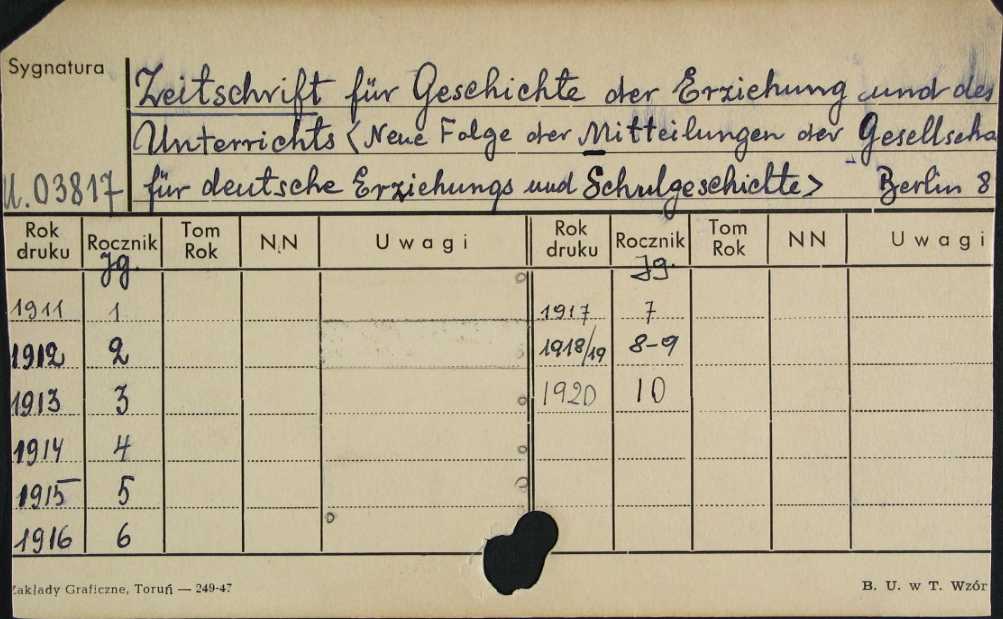 Sygnatura
Zeitschrift für Geschichte der Erziehung und des
Unterrichts <Neue Folge der Mitteilungen der Gesellscha
U.03817 für deutsche Erziehungs und Schulgeschichte> Berlin 8
Rok druku Rocznik Tom Rok N.N Uwagi Rok druku Rocznik Tom Rok NN Uwagi
Jg. Jg.
1911 1 1917 7
1912 2 1918/19 8-9
1913 3 1920 10
1914 4
1915 5
1916 6
Zakłady Graficzne, Toruń — 249-47 B. U. w T. Wzór